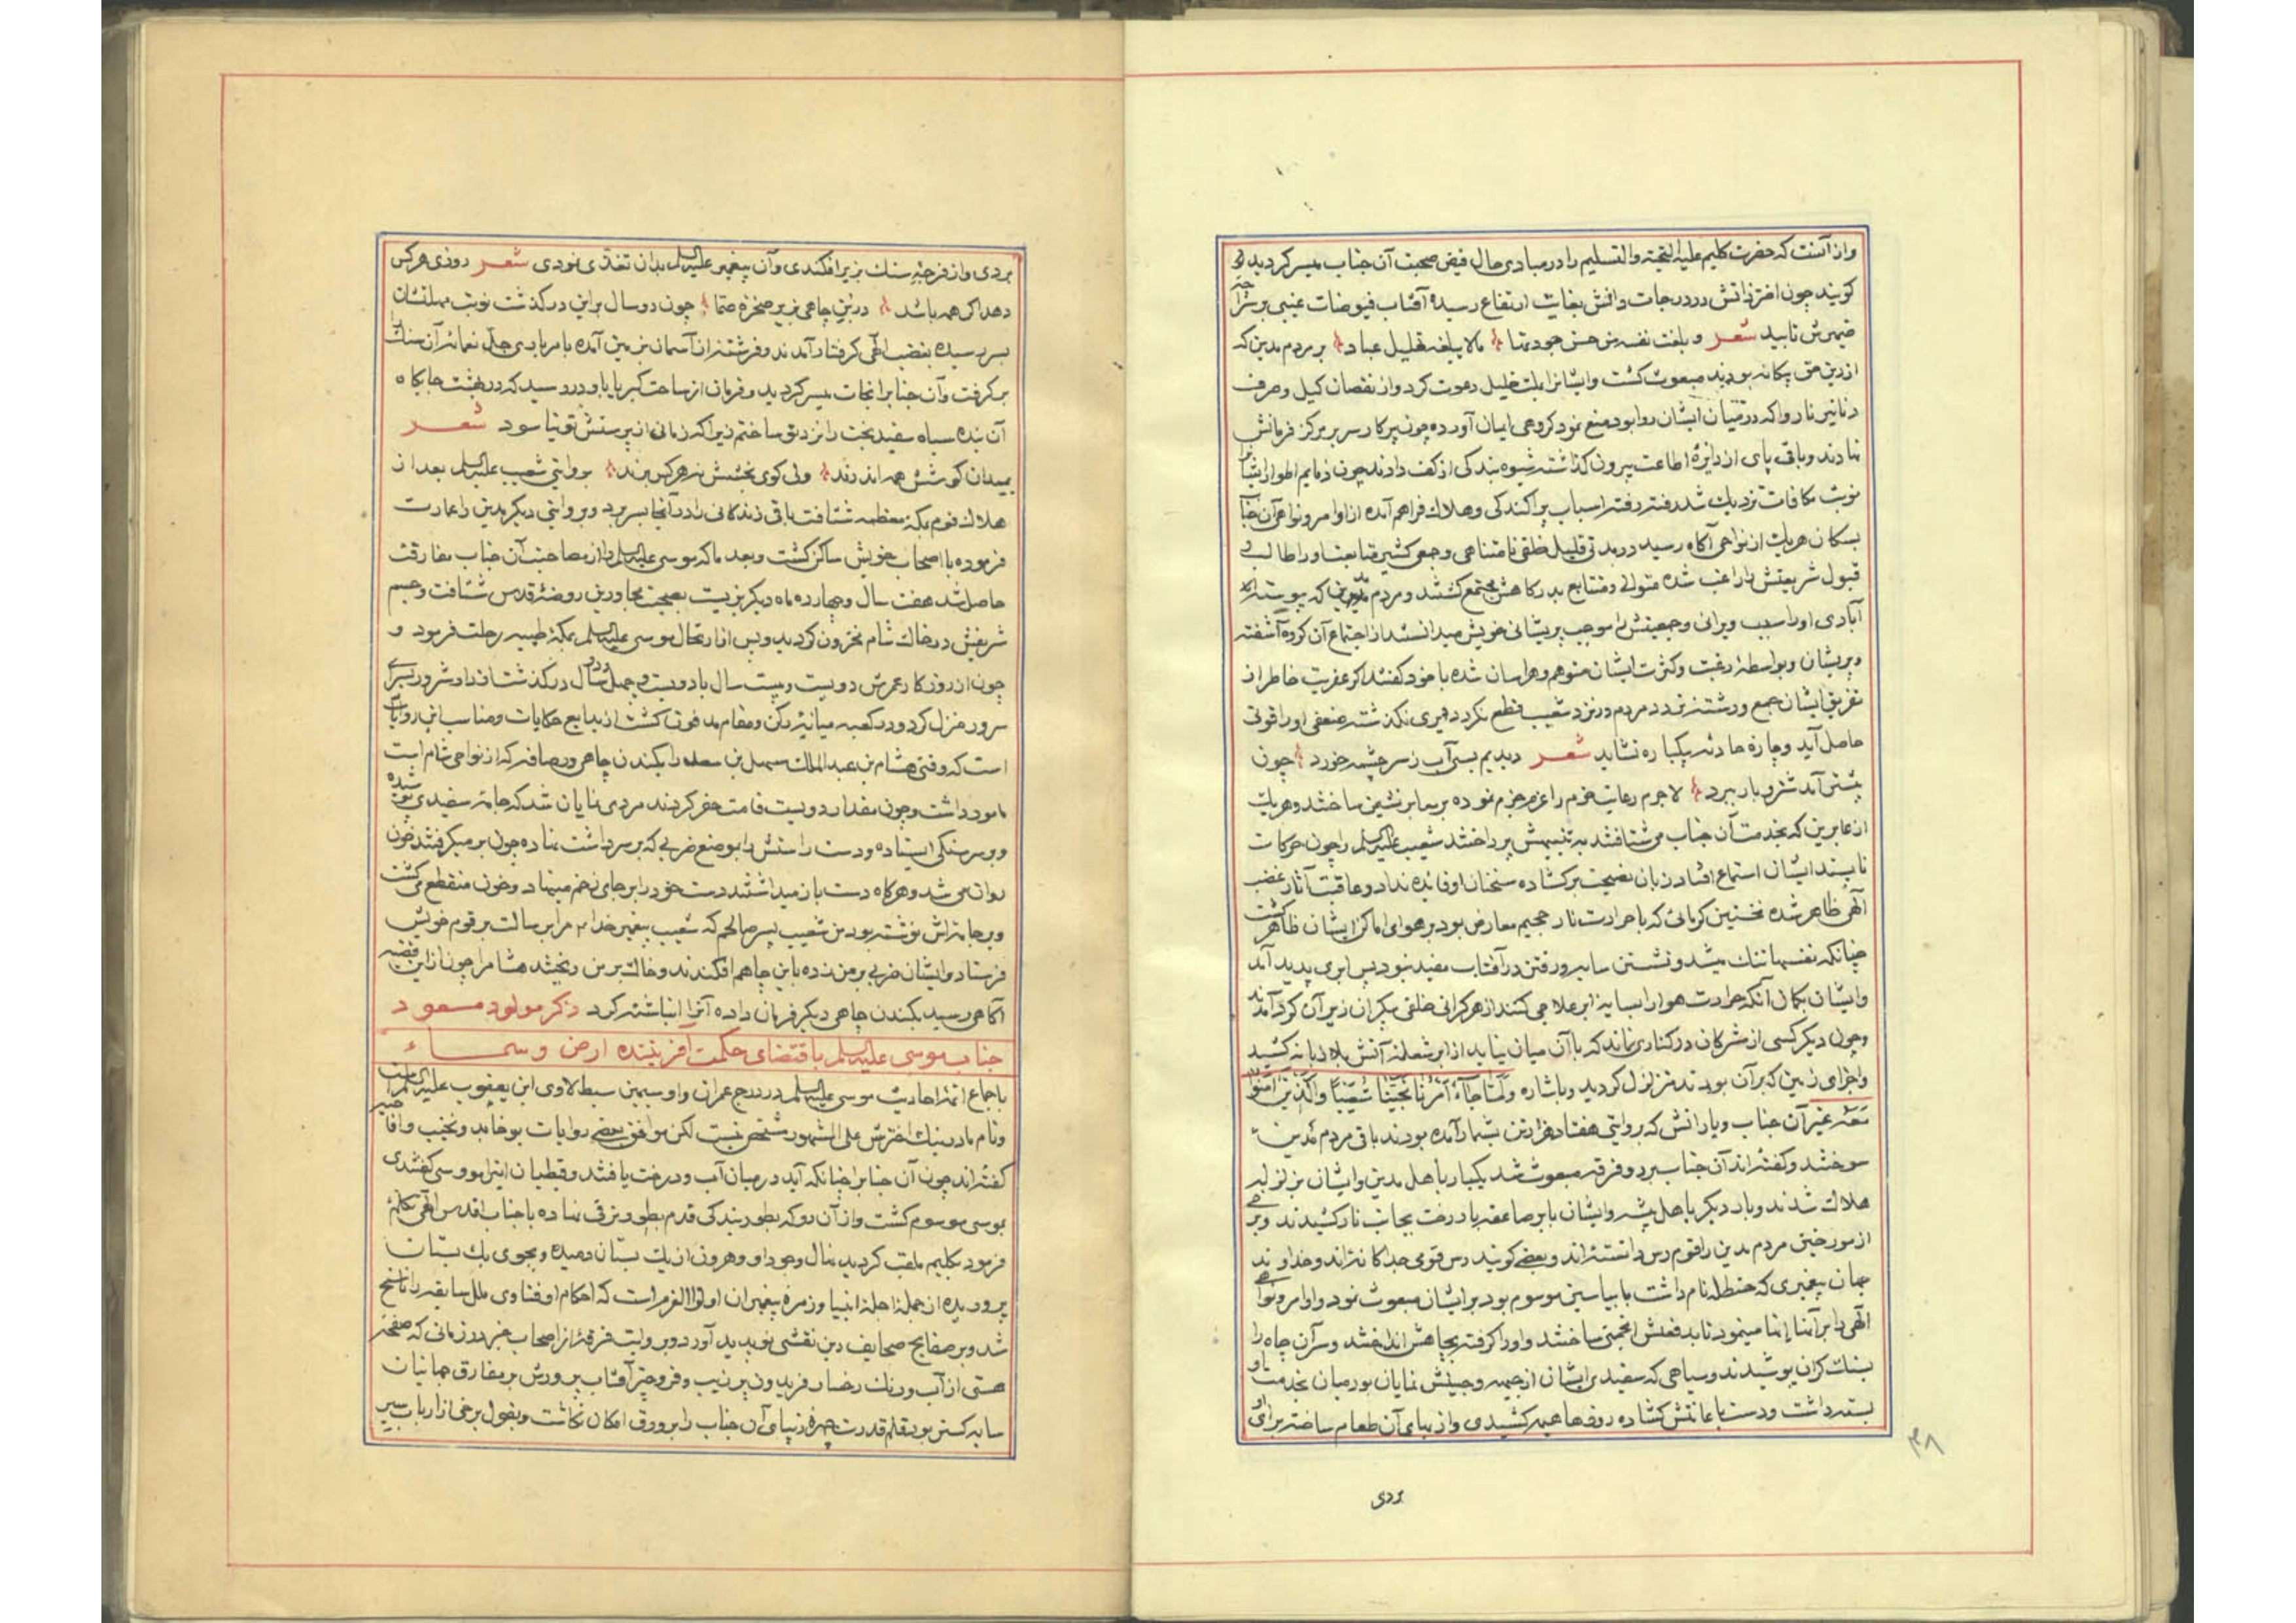 واز آنست که حضرت کلیم علیه التحیة والتسلیم را در مبادی حال فیض صحبت آن جناب میسر کردید و
کویند چون اختر ذاتش در درجات دانش بغایت ارتفاع رسید آفتاب فیوضات غیبی بر
ضمیرش تابید شعر و بلغت نفسه من حسن جود بر مردم مدین که
از دین حق بیکانه بودند مبعوث کشت وایشانرا بملت خلیل دعوت کرد واز نقصان کیل وصرف
دنانیر ناروا که در میان ایشان روا بود منع نمود کروهی ایمان آورده چون پرکار سر بر مرکز فرمانش
نهادند وباقی پای از دایرهٔ اطاعت بیرون کذاشته شیوه بندکی از کف دادند چون ذمایم اطوار ایشانرا
نوبت مکافات نزدیک شد رفته رفته اسباب پراکندکی وهلاک فراهم آمده از اوامر ونواهی آن جناب
بسکان هر یک از نواحی آکاه رسید در مدتی قلیل خلقی نامتناهی وجمعی کثیر متابعت او را طالب و
قبول شریعتش را راغب شده متوالی ومتتابع بدرکاهش مجتمع کشتند ومردم مدین که پیوسته
آبادی او را سبب ویرانی وجمعیتش را موجب پریشانی خویش میدانستند از اجتماع آن کروه آشفته
وپریشان وبواسطهٔ رغبت وکثرت ایشان متوهم وهراسان شده با خود کفتند اکر عنقریب خاطر از
تفریق ایشان جمع ورشته تردد مردم در نزد شعیب قطع نکردد دیری نکذشته ضعفی او را قوتی
حاصل آید وچاره حادثه یکباره نشاید شعر دیدیم بسی آب ز سرچشمه خورد چون
بیشتر آمد شتر وبار ببرد لاجرم رعایت حزم را عزم جزم نموده بر معابر نشیمن ساختند وهر یک
از عابرین که بخدمت آن جناب می شتافتند به تنبیهش پرداختند شعیب علیه السلم را چون حرکات
ناپسند ایشان استماع افتاد زبان نصیحت برکشاده سخنان او فایده نداد وعاقبت آثار غضب
الهی ظاهر شده نخستین کرمائی که با حرارت نار جحیم معارض بود بر هوای اماکن ایشان ظاهر کشت
چنانکه نفسها تنک میشد ونشستن سایه ورفتن در آفتاب مفید نبود پس ابری پدید آمد
وایشان بکمان آنکه حرارت هوا را بسایهٔ ابر علاجی کنند از هر کرانی خلقی بیکران زیر آن کرد آمدند
وچون دیکر کسی از مشرکان در کناری نماند که با آن میان نیاید از ابر شعله آتش بلا زبانه کشید
واجزای زمین که بر آن بودند متزلزل کردید وباشاره وَلَمَّا جَاءَ أَمْرُنَا نَجَّيْنَا شُعَيْبًا وَالَّذِينَ آمَنُوا
مَعَهُ غیر آن جناب ویارانش که بروایتی هفتاد هزار تن بشمار آمده بودند باقی مردم مدین
سوختند وکفته اند آن جناب بر دو فرقه مبعوث شد یکبار باهل مدین وایشان بزلزله
هلاک شدند وبار دیکر باهل بیشه وایشان بابر صاعقه بار رخت بجانب نار کشیدند وبرخی
از مورخین مردم مدین را قوم رس دانسته اند وبعضی کویند رس قومی جداکانه اند وخداوند
جهان پیغمبری که حنظله نام داشت یا بیاسین موسوم بود بر ایشان مبعوث نمود واوامر ونواهی
الهی را بر آنها انها مینمود تا بد فعلش انجمنی ساختند واو را کرفته بچاهش انداختند وسر آن چاه را
بسنک کران پوشیدند وسیاهی که سفیدی ایشان از جبهه وجبینش نمایان بود میان بخدمت او
بسته داشت ودست باعانتش کشاده روزها هیمه کشیدی واز بهای آن طعام ساخته برای او
بردی
۳۸
بردی واز فرجهٔ سنک بزیر افکندی وآن پیغمبر علیه السلم بدان تغذی نمودی شعر روزی هر کس
دهد اکر همه باشد در بن چاهی بزیر صخرهٔ صما چون دو سال بر این در کذشت نوبت مهلتشان
بسر رسیده بغضب الهی کرفتار آمدند وفرشته از آسمان بزمین آمده بامر باری جل نعمائه آن سنک را
برکرفت وآن جنابرا نجات میسر کردید وفرمان از ساحت کبریا باو در رسید که در بهشت جایکاه
آن بنده سیاه سفید بخت را نزد تو ساختم زیرا که زمانی از پرستش تو نیاسود شعر
بمیدان کوشش همه اندرند ولی کوی بخشش نه هر کس برند بروایتی شعیب علیه السلم بعد از
هلاک قوم بمکهٔ معظمه شتافت باقی زندکانی را در آنجا بسر برد وبروایتی دیکر مدین را عمارت
فرموده با اصحاب خویش ساکن کشت وبعد ما که موسی علیه السلم را از مصاحبت آن جناب مفارقت
حاصل شد هفت سال وچهارده ماه دیکر بزیست بصحبت مجاورین روضهٔ قدس شتافت وجسم
شریفش در خاک شام مخزون کردید وپس از ارتحال موسی علیه السلم بمکهٔ طیبه رحلت فرمود و
چون از روزکار عمرش دویست وبیست سال یا دویست وچهل ودو سال در کذشت از دار شرور بسرای
سرور منزل کرد ودر کعبه میانهٔ رکن ومقام مدفون کشت از بدایع حکایات ومناسب این روایات
است که وقتی هشام بن عبدالملک سهل بن سعد را بکندن چاهی در رصافه که از نواحی شام است
مامور داشت وچون مقدار دویست قامت حفر کردند مردی نمایان شد که جامهٔ سفیدی پوشیده
وبر سر سنکی ایستاده ودست راستش را بموضع ضربی که بر سر داشت نهاده چون بر میکرفتند خون
روان می شد وهرکاه دست باز میداشتند دست خود را بر جای زخم مینهاد وخون منقطع می کشت
وبر جامه اش نوشته بود من شعیب پسر صالحم که شعیب پیغمبر خدا م مرا برسالت بر قوم خویش
فرستاد وایشان ضربی بر من زده باین چاهم افکندند وخاک بر من ریختند هشام را چون از این قضیه
آکاهی رسید بکندن چاهی دیکر فرمان داده آنرا انباشته کرد ذکر مولود مسعود
جناب موسی علیه السلم باقتضای حکمت آفریننده ارض وسماء
باجماع ائمهٔ احادیث موسی علیه السلم در درج عمران واو سیمین سبط لاوی ابن یعقوب علیه السلم است
ونام مادر نیک اخترش علی المشهور مشخص نیست لکن موافق بعضی روایات یوخابد ونخیب وافاحیه
کفته اند چون آن جنابرا چنانکه آید در میان آب ودرخت یافتند وقبطیان اینرا مو وسی کفتندی
بموسی موسوم کشت واز آن رو که بطور بندکی قدم بطور ترقی نهاده با جناب اقدس الهی تکلم
فرمود بکلیم ملقب کردید نهال وجود او وهرون از یک بستان دمیده وبجوی یک بستان
پروریده از جملهٔ اجلهٔ انبیا وزمرهٔ پیغمبران اولوا العزم است که احکام او فتاوی ملل سابقه را ناسخ
شد وبر صفایح صحایف دین نقشی نو پدید آورد وبروایت فرقهٔ از اصحاب خبر در زمانی که صفحهٔ
هستی از آب ورنک رخسار فریدون پر زیب وفر وچتر آفتاب پرورش بر مفارق جهانیان
سایه کستر بود قلم قدرت چهرهٔ زیبای آن جناب را بر ورق امکان نکاشت وبقول برخی از ارباب سیر